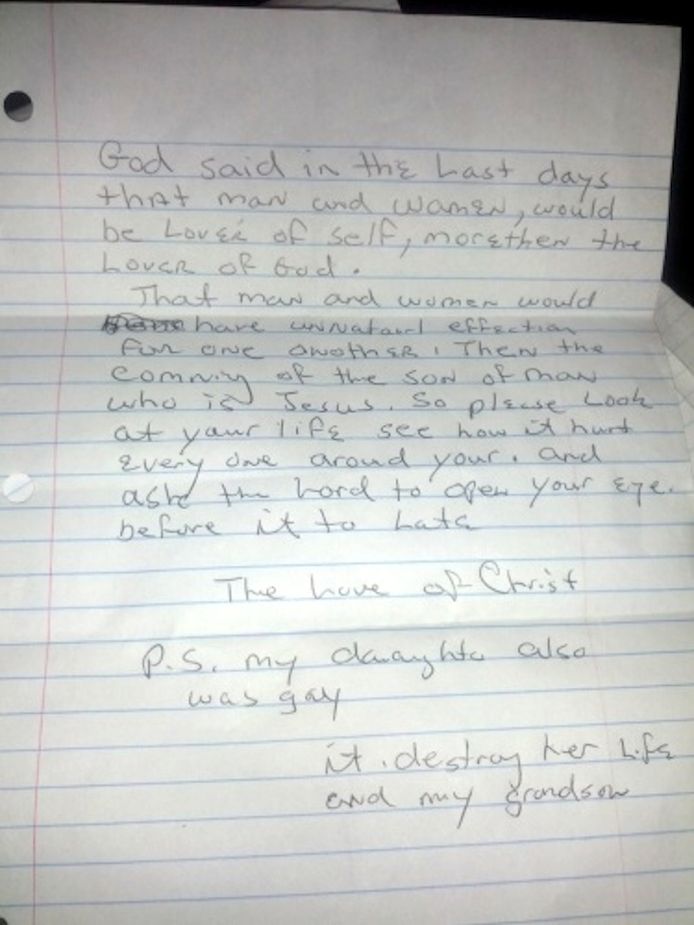 God said in the Last days
that man and women, would
be Lover of self, morethen the
Lover of God.
That man and women would
have unnataurl effection
for one another. Then the
comniy of the son of man
who is Jesus. So please Look
at your life see how it hurt
every one aroud your. and
ask the Lord to open your eye.
before it to Late
The Love of Christ
P.S. my daughte also
was gay
it destroy her Life
and my grandson